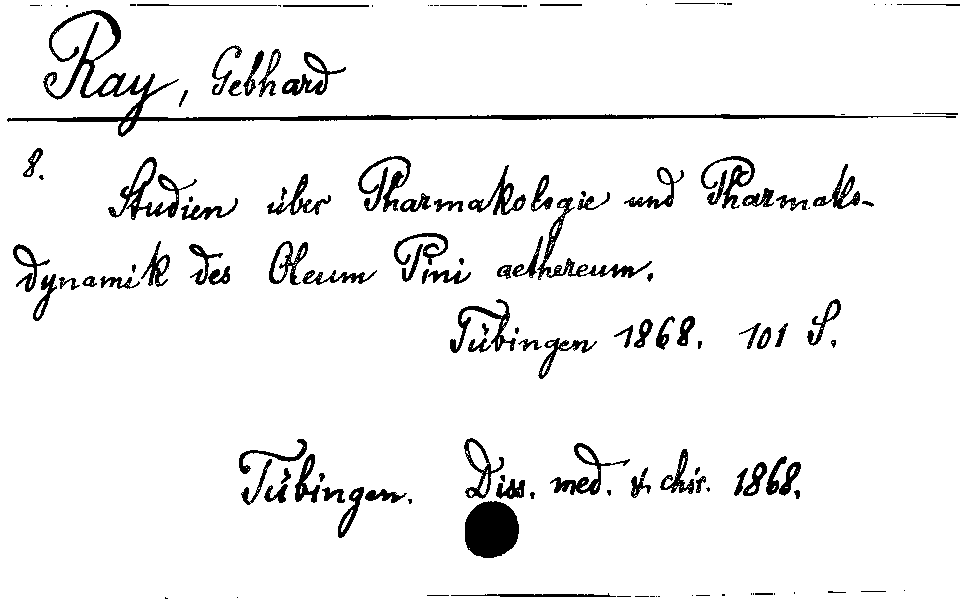 Ray, Gebhard
8.
Studien über Pharmakologie und Pharmako-
dynamik des Oleum Pini aethereum.
Tübingen 1868. 101 S.
Tübingen. Diss. med. u. chir. 1868.